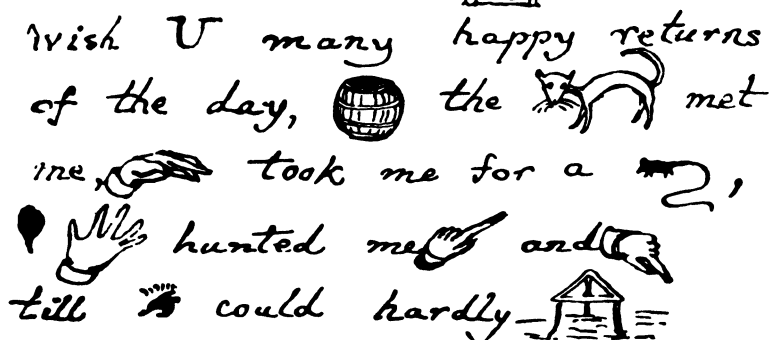 wish U many happy returns
of the day, the met
me, took me for a ,
hunted me and
till could hardly